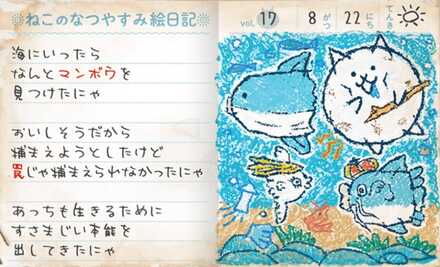 ねこのなつやすみ絵日記
vol. 17 8がつ 22にち てんき
海にいったら
なんとマンボウを
見つけたにゃ
おいしそうだから
捕まえようとしたけど
罠じゃ捕まえられなかったにゃ
あっちも生きるために
すさまじい本能を
出してきたにゃ